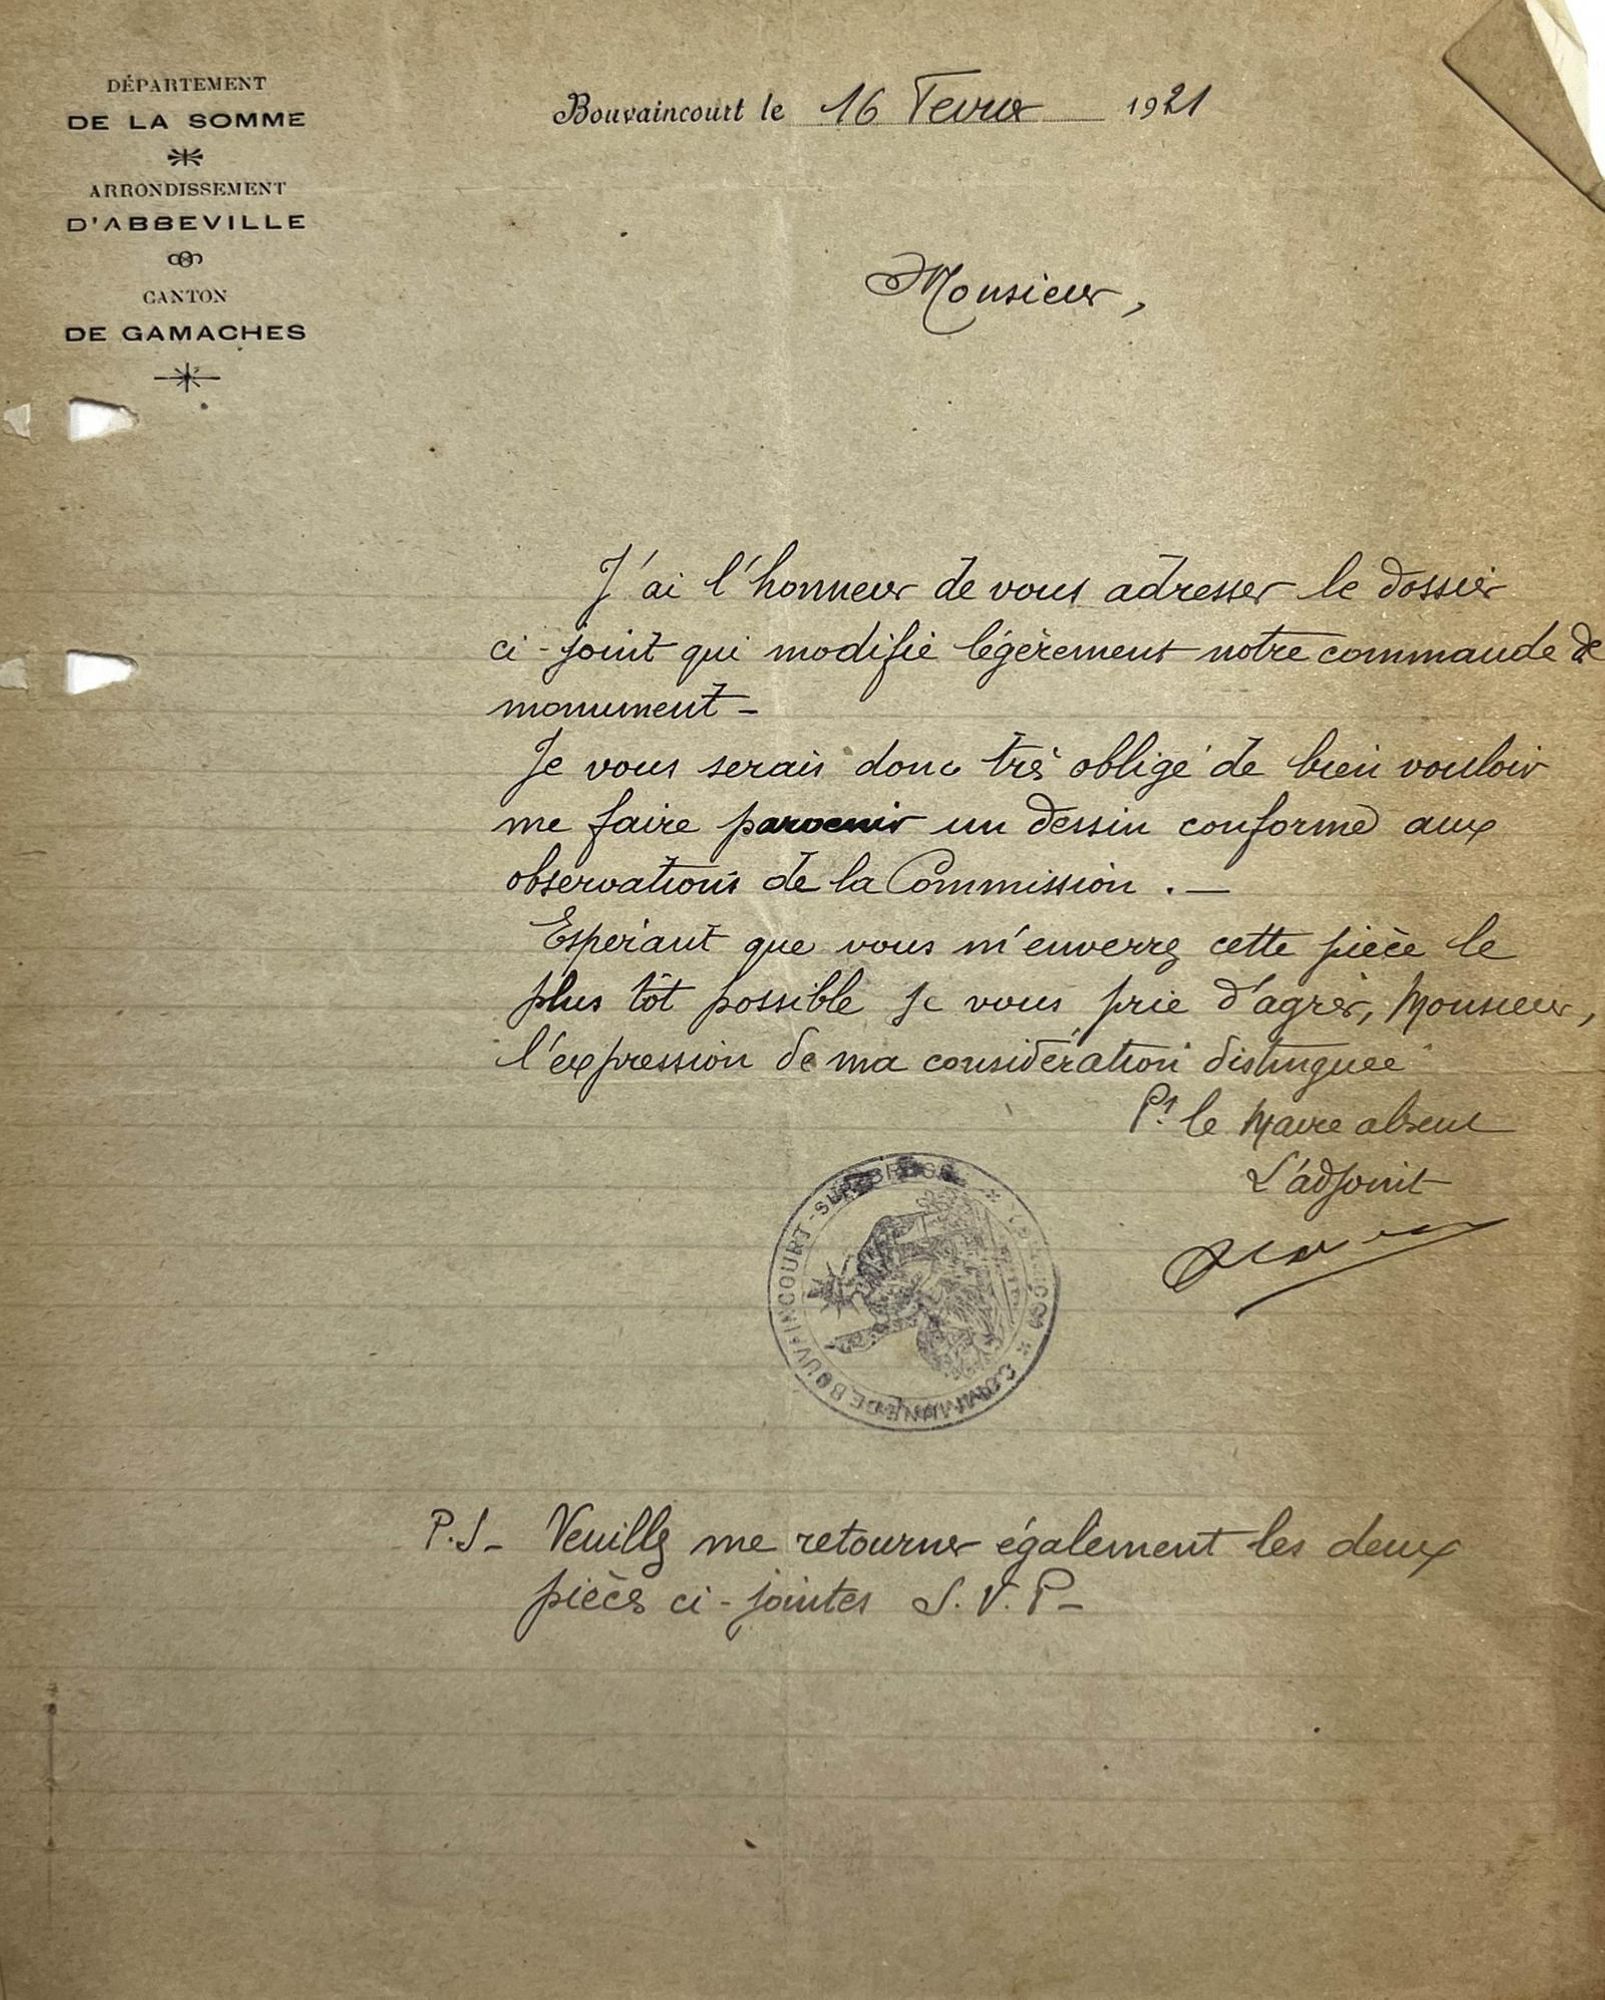 DÉPARTEMENT
DE LA SOMME
ARRONDISSEMENT
D'ABBEVILLE
CANTON
DE GAMACHES
Bouvaincourt le 16 Fevrier 1921
Monsieur,
J'ai l'honneur de vous adresser le dossier
ci-joint qui modifie légèrement notre commande de
monument -
Je vous serais donc très obligé de bien vouloir
me faire parvenir un dessin conforme aux
observations de la Commission . —
Espérant que vous m'enverrez cette pièce le
plus tôt possible je vous prie d'agréer, Monsieur,
l'expression de ma considération distinguée
Pr le Maire absent
L'adjoint
COMMUNE DE BOUVAINCOURT-SUR-BRESLE
P.S - Veuillez me retourner également les deux
pièces ci-jointes S.V.P -